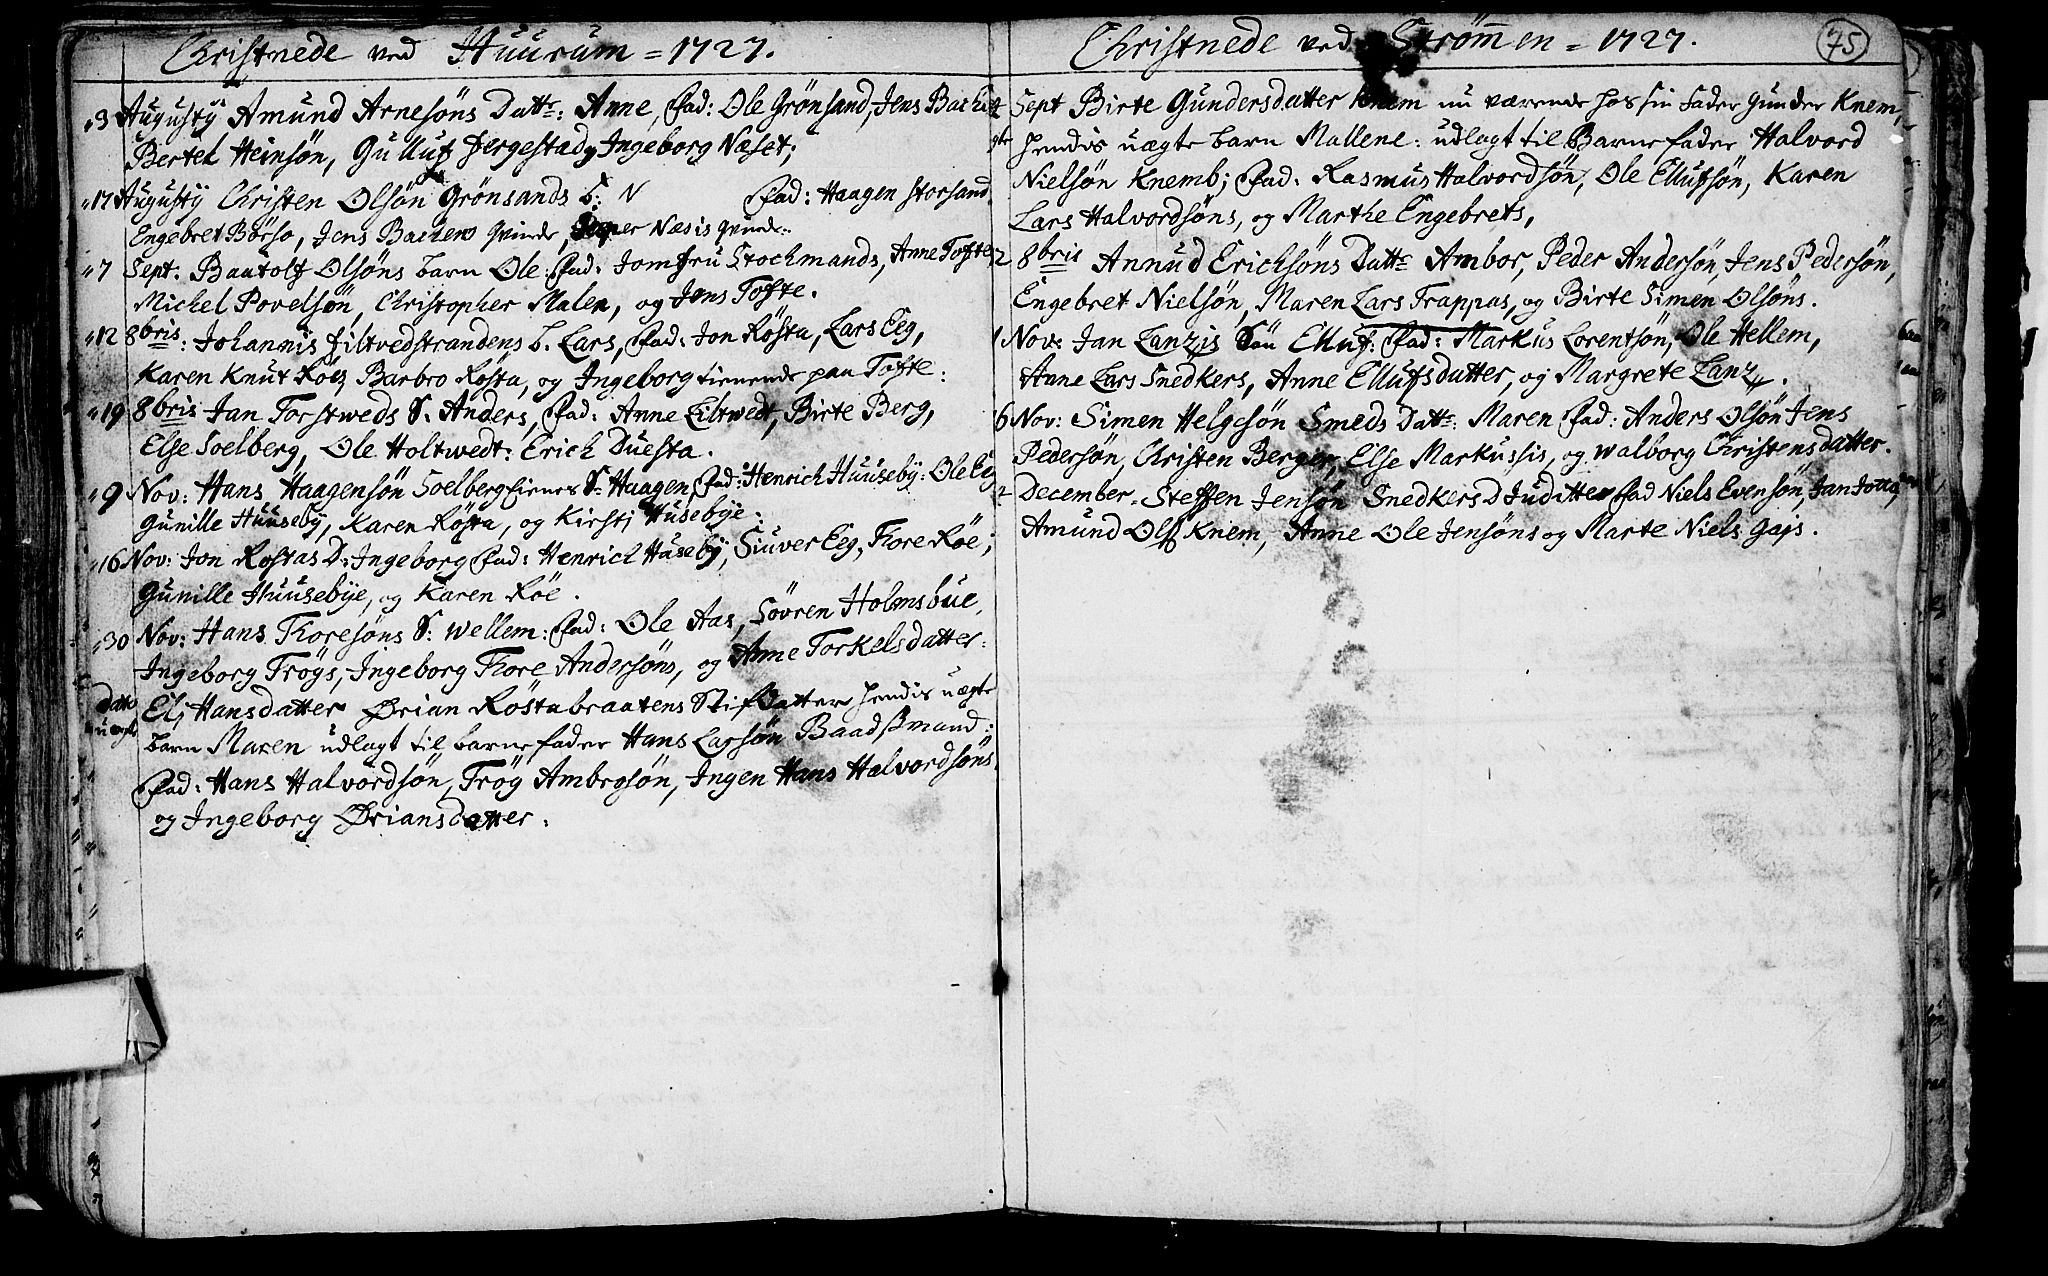 Christnede ved Huurum = 1727.
3 Augustij Amund Arnesöns Datt: Anne, Fad: Ole Grönsand, Jens Bachen
Bertel Heinsön, Gulluf Ingeborg Næset;
17 Augustij Christen Olsön Grönsands S: N Fad: Haagen Storsand
Engebret Börsö, Jens Bachens qvinde, Næsis qvinde.
7 Sept. Bautolf Olsöns barn Ole: Fad: Jomfru Stochmands, Anne Tofte
Michel Povelsön, Christopher Malen, og Jens Tofte.
12 8bris: Johannis filtvedstrandens b. Lars, Fad: Jon Rösta, Lars Eeg,
Karen Knut Röes, Barbro Rösta, og Ingeborg tienende paa Tofte:
19 8bris Jan Torstweds S. Anders, Fad: Anne Filtwedt, Birte Berg,
Else Soelberg, Ole Holtwedt: Erich Duesta.
9 Nov: Hans Haagensön Soelberg S: Haagen, Fad: Henrich Huuseby: Ole Eeg
Gunille Huuseby, Karen Rösta, og Kirstj Husebye:
16 Nov: Jon Rostas D: Ingeborg Fad: Henrich Huseby, Siuver Eeg, Thore Röe;
Gunille Huusebye, og Karen Röe.
30 Nov: Hans Thoresöns S: Wellem: Fad: Ole Aas, Sövren Holmsbue,
Ingeborg Tröys, Ingeborg Thore Andersöns, og Anne Torkelsdatter:
Datto Elj Hansdatter Ørian Röstabraatens Stifdatter hendis uægte
uægte barn Maren udlagt til barnefader Hans Larsön Baadßmand:
Fad: Hans Halvordsön, Tröy Ambrosön, Ingen Hans Halvordsöns
og Ingeborg Øriansdatter.
Christnede ved Strömmen = 1727.
75
Sept Birte Gundersdatter Knem nu værende hos sin fader Gunder Knem,
hendis uægte barn Mallene: udlagt til Barnefader Halvord
Nielsön Knemb; Fad: Rasmus Halvordsön, Ole Ellufsön, Karen
Lars Halvordsöns, og Marthe Engebrets,
2 8bris Annud Ericksöns Datt: Ambor, Peder Andersön, Jens Pedersön,
Engebret Nielsön, Maren Lars Trappas, og Birte Simen Olsöns.
1 Nov: Jan Lanzis Sön Elluf: Fad: Markus Lorentsön, Ole Hellem,
Anne Lars Snedkers, Anne Ellufsdatter, og Margrete Lanz.
6 Nov: Simen Helgesön Smeds Datt: Maren Fad: Anders Olsön Jens
Pedersön, Christen Berger, Else Markussis, og Walborg Christensdatter.
2 December. Steffen Jensön Snedkers D Juditte Fad Niels Evensön, Jan
Amund Olss Knem, Anne Ole Jensöns og Marte Niels Gajs.